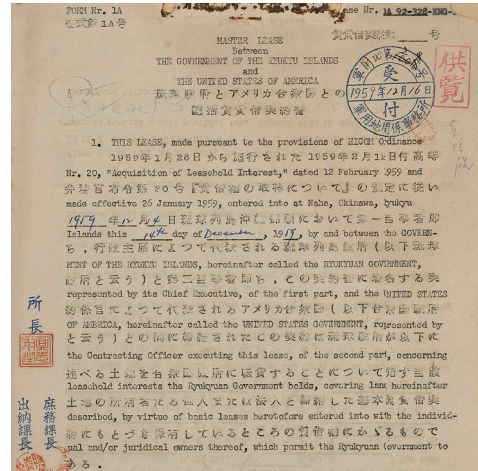 FORM Nr. 1A
Lease Nr. DA 92-328-ENG-
MASTER LEASE
Between
THE GOVERNMENT OF THE RYUKYU ISLANDS
and
THE UNITED STATES OF AMERICA
琉球政府とアメリカ合衆国との
総括賃貸借契約書
受
1959年12月16日
付
軍用地関係事務所
供覧
1. THIS LEASE, made pursuant to the provisions of HICOM Ordinance
1959年1月26日から施行された1959年2月12日付高等
Nr. 20, "Acquisition of Leasehold Interest," dated 12 February 1959 and
弁務官布令第20号『賃借権の取得について』の規定に従い
made effective 26 January 1959, entered into at Naha, Okinawa, Ryukyu
1959年12月14日琉球列島沖縄那覇において第一当事者即
Islands this 14th day of December, 1959, by and between the GOVERN-
ち、行政主席によつて代表される琉球列島政府(以下琉球
MENT OF THE RYUKYU ISLANDS, hereinafter called the RYUKYUAN GOVERNMENT,
政府と云う)と第二当事者即ち、この契約書に署名する契
represented by its Chief Executive, of the first part, and the UNITED STATES
約係官によつて代表されるアメリカ合衆国(以下合衆国政府
OF AMERICA, hereinafter called the UNITED STATES GOVERNMENT, represented by
と云う)との間に締結されたこの契約は琉球政府が以下に
the Contracting Officer executing this lease, of the second part, concerning
述べる土地を合衆国政府に転貸することについて先ず当該
leasehold interests the Ryukyuan Government holds, covering land hereinafter
土地の所有者たる個人または法人と締結した基本賃貸借契
described, by virtue of basic leases heretofore entered into with the individ-
約にもとづき保有しているところの賃借権にかゝるもので
ual and/or juridical owners thereof, which permit the Ryukyuan Government to
ある.
所長
庶務課長
出納課長